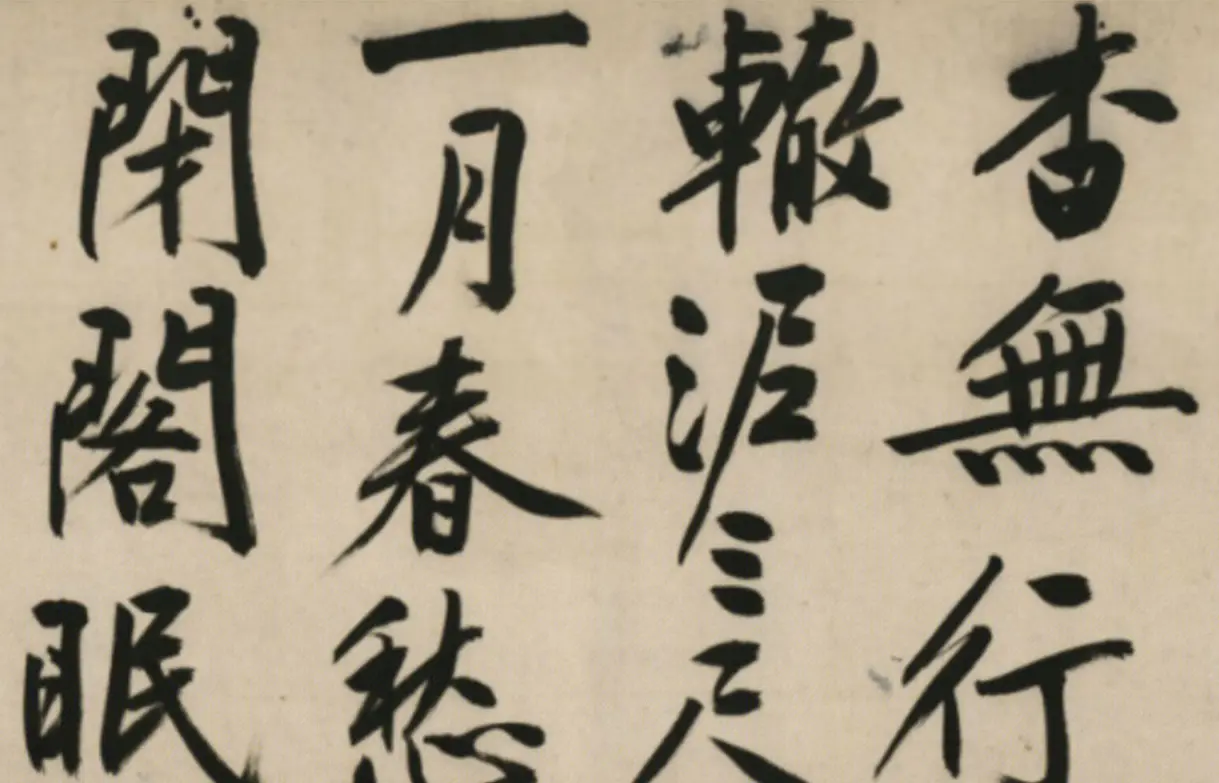 杳無行
轍泥三尺
一月春愁
閉閣眠